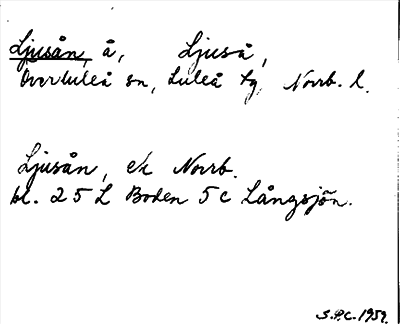 Ljusån, å, Ljuså,
Överluleå sn, Luleå tg, Norrb. l.
Ljusån, ek Norrb.
bl. 25 L Boden 5 c Långsjön.
S.P.C. 1959.